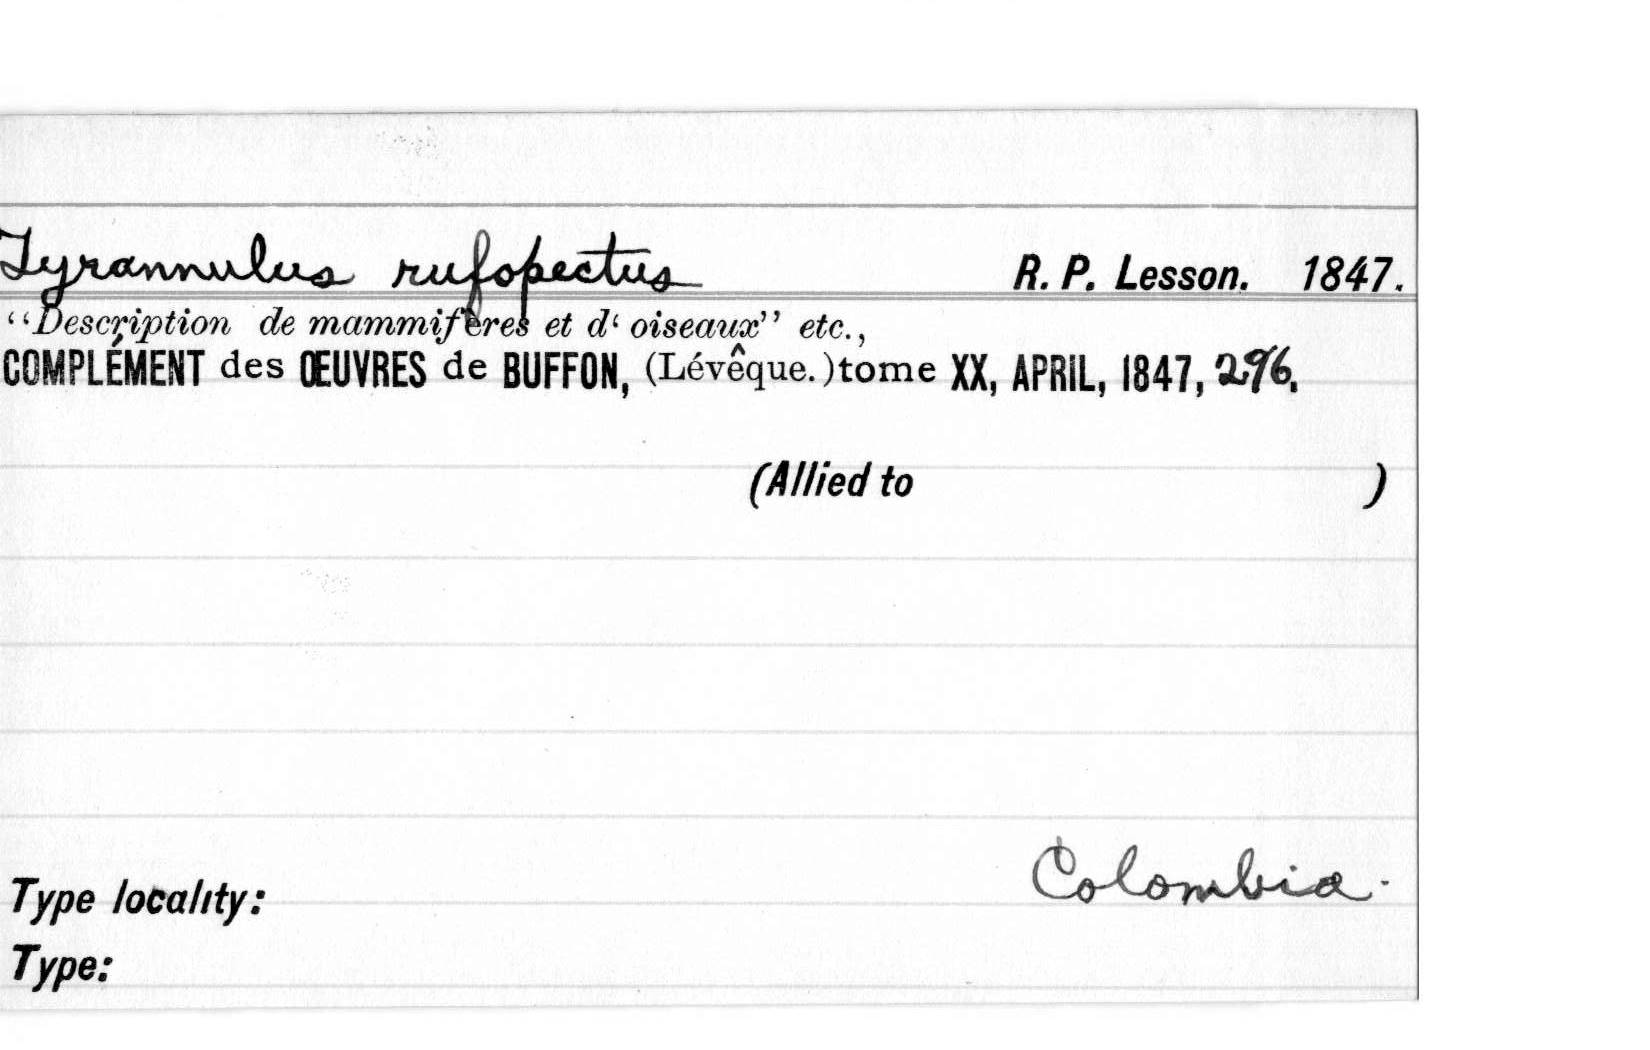 Tyrannulus rufopectus R. P. Lesson. 1847.
“Description de mammifères et d‘ oiseaux” etc.,
COMPLÉMENT des ŒUVRES de BUFFON, (Lévêque.)tome XX, APRIL, 1847, 296.
(Allied to )
Colombia.
Type locality:
Type: